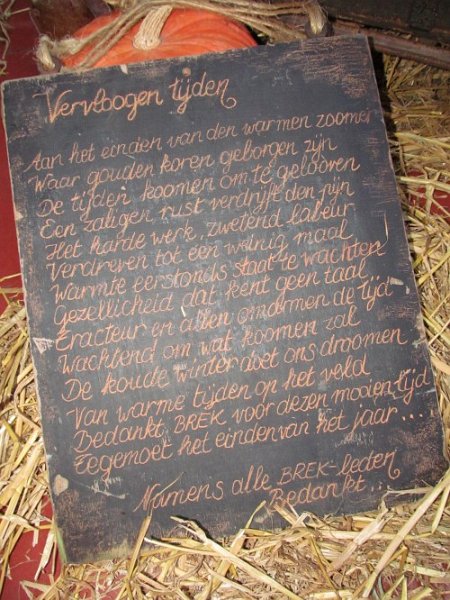 Vervloogen tijden
Aan het einden van den warmen zoomer
Waar gouden koren geborgen zijn
De tijden koomen om te gelooven
Een zaligen rust verdrijft den pijn
Het harde werk, zwetend labeur
Verdreven tot een weinig maal
Warmte eerstonds staat te wachten
Gezellicheid dat kent geen taal
Eracteur en allen omarmen de tijd
Wachtend om wat koomen zal
De koude winter doet ons droomen
Van warme tijden op het veld
Bedankt, BREK voor dezen mooien tijd
Tegemoet het einden van het jaar....
Namens alle BREK-leden
Bedankt...